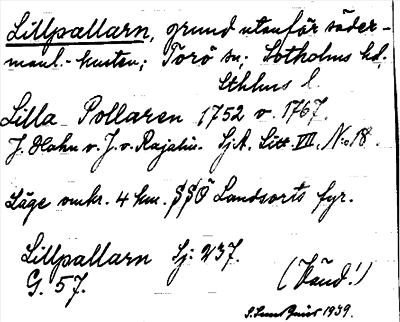 Lillpallarn, grund utanför söder-
manl.-kusten; Torö sn; Sotholms hd;
Sthlms l.
Lilla Pollaren 1752 o. 1767.
J. Hahn o. J. v. Rajalin. SjA. Litt. VII, No 18.
Läge omkr. 4 km. SSO Landsorts fyr.
Lillpallarn Sj: 237.
G. 57.
(Känd!)
1939.